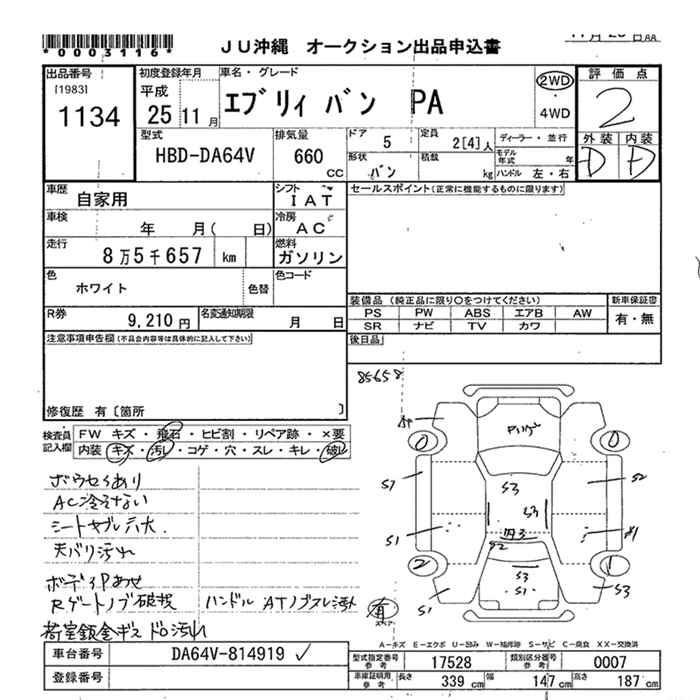 *0003116*
JU沖縄 オークション出品申込書
出品番号
[1983]
1134
初度登録年月
平成
25 11 月
車名・グレード
エブリィ バン PA
2WD
4WD
評価点
2
外装 内装
D D
型式
HBD-DA64V
排気量
660
CC
ドア
5
定員
2[4]人
形状
バン
積載
kg
ディーラー・並行
モデル年式
年
ハンドル 左・右
車歴
自家用
シフト
IAT
セールスポイント(正常に機能するものに限ります)
車検
年 月( 日)
冷房
AC
走行
8万5千657 km
燃料
ガソリン
色
ホワイト
色替
色コード
R券
9,210 円
名変通知期限
月 日
装備品 (純正品に限り○をつけてください)
PS PW ABS エアB AW
SR ナビ TV カワ
新車保証書
有・無
後日品
注意事項申告欄(不具合内容等は具体的に記入して下さい)
修復歴 有〔箇所 〕
検査員記入欄
FW キズ・飛石・ヒビ割・リペア跡・×要
内装・キズ・汚レ・コゲ・穴・スレ・キレ・破レ
85658
S7
S2
S3
S3
S1
S2
S3
S1
S1
S3
AC冷えない
天バリ汚れ
Rゲートノブ破損 ハンドル ATノブスレ汚れ
有
A-キズ E-エクボ U-凹み W-補修跡 S-サビ C-腐食 XX-交換済
車台番号
DA64V-814919 ✓
登録番号
型式指定番号
参考
17528
類別区分番号
参考
0007
車庫証明用
参考
長さ
339 cm
幅
147 cm
高さ
187 cm